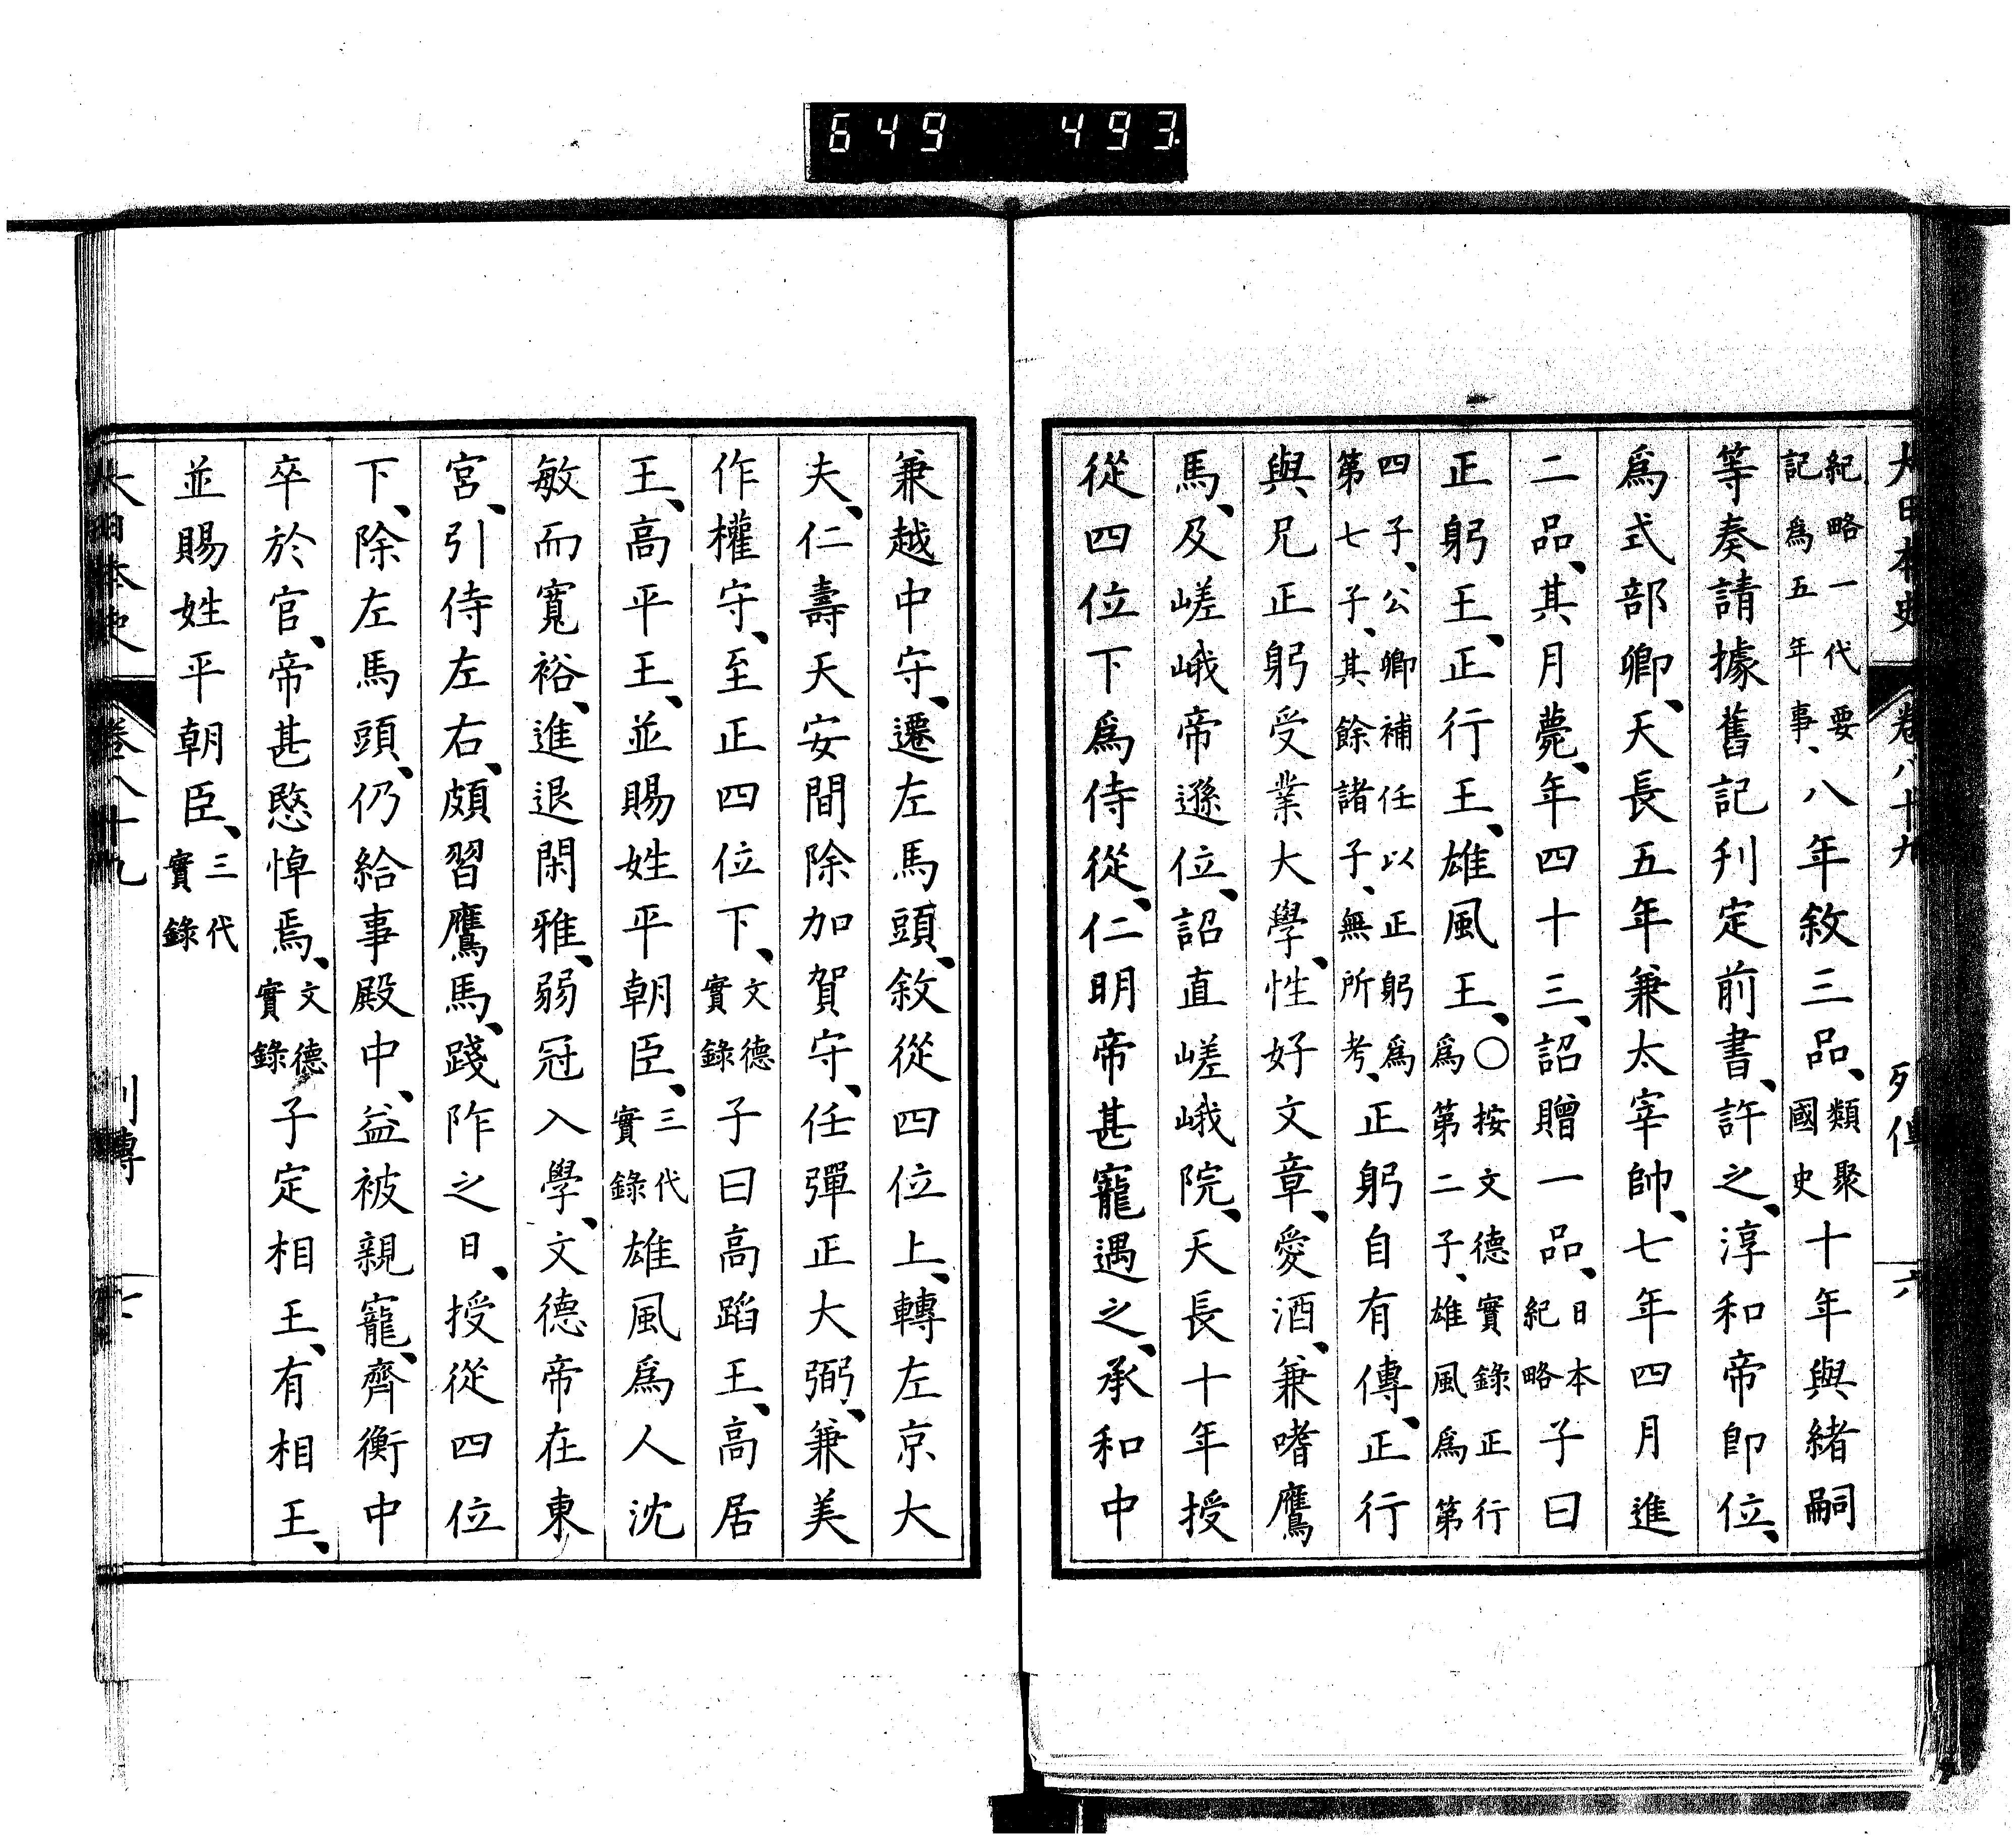 649 493.
大日本史 卷八十九 列傳 六
紀略一代要記爲五年事、八年敘三品、類聚國史十年與緒嗣
等奏請據舊記刋定前書、許之、淳和帝卽位、
爲式部卿、天長五年兼太宰帥、七年四月進
二品、其月薨、年四十三、詔贈一品、日本紀略子曰
正躬王、正行王、雄風王、○按文德實錄正行爲第二子、雄風爲第
四子、公卿補任以正躬爲第七子、其餘諸子、無所考、正躬自有傳、正行
與兄正躬受業大學、性好文章、愛酒、兼嗜鷹
馬、及嵯峨帝遜位、詔直嵯峨院、天長十年授
從四位下爲侍從、仁明帝甚寵遇之、承和中
兼越中守、遷左馬頭、敘從四位上、轉左京大
夫、仁壽天安間除加賀守、任彈正大弼、兼美
作權守、至正四位下、文德實錄子曰高蹈王、高居
王、高平王、並賜姓平朝臣、三代實錄雄風爲人沈
敏而寬裕、進退閑雅、弱冠入學、文德帝在東
宮、引侍左右、頗習鷹馬、踐阼之日、授從四位
下、除左馬頭、仍給事殿中、益被親寵、齊衡中
卒於官、帝甚愍悼焉、文德實錄子定相王、有相王、
並賜姓平朝臣、三代實錄
大日本史 卷八十九 列傳 七